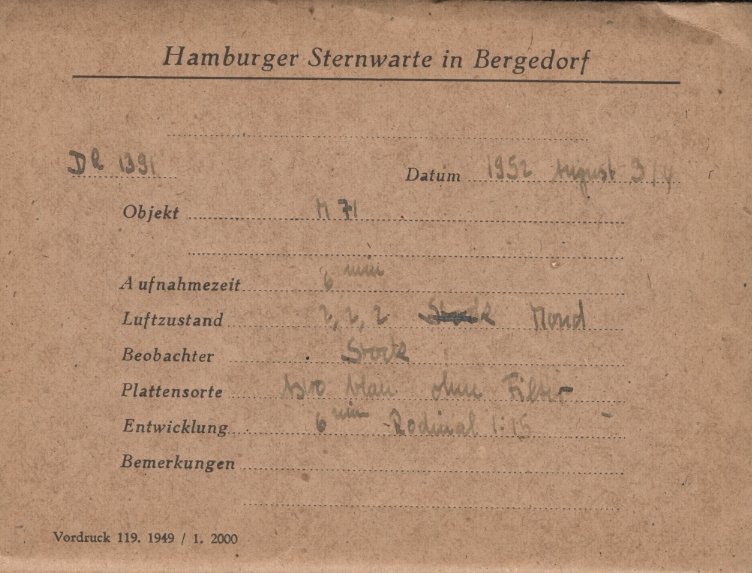 Hamburger Sternwarte in Bergedorf
DR 1391 Datum 1952 August 3/4
Objekt M 71
Aufnahmezeit 6 min
Luftzustand 2, 2, 2 Mond
Beobachter Stock
Plattensorte blau ohne Filter
Entwicklung 6 min Rodinal 1:15
Bemerkungen
Vordruck 119. 1949 / 1. 2000